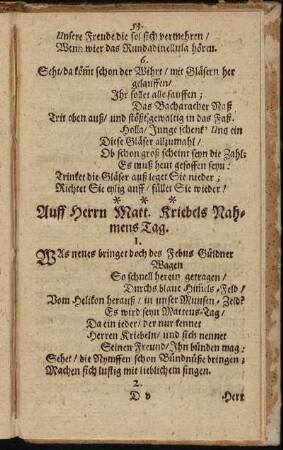 53.
Unsere Freude die sol sich vermehren/
Wenn wier das Rundadinellula hören.
6.
Seht/da köm̃t schon der Wihrt/ mit Gläsern her
gelauffen/
Ihr sollet alle sauffen;
Das Bacharacher Naß
Trit oben auß/ und stößt gewaltig in das Faß.
Holla/ Junge schenk' Uns ein
Diese Gläser allzumahl/
Ob schon groß scheint seyn die Zahl:
Es muß heut gesoffen seyn:
Trinket die Gläser auß leget Sie nieder;
Richtet Sie eylig auff/ füllet Sie wieder/
* * *
Auff Herrn Matt. Kriebels Nah-
mens Tag.
1.
WAs neues bringet doch des Febus Güldner
Wagen
So schnell herein getragen/
Durchs blaue Him̃els-Feld/
Vom Helikon herauß/ in unser Musen-Zeld?
Es wird seyn Matteus-Tag/
Da ein ieder/ der nur kennet
Herren Kriebeln/ und sich nennet
Seinen Freund/ Ihn binden mag:
Sehet/ die Nymffen schon Bündnüße bringen;
Machen sich lustig mit lieblichem singen.
2.
D v Herr